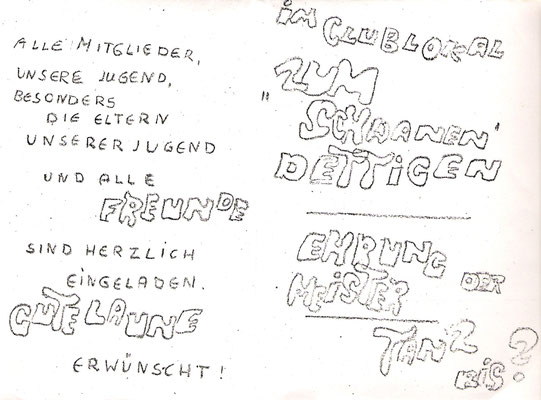 ALLE MITGLIEDER,
UNSERE JUGEND,
BESONDERS
DIE ELTERN
UNSERER JUGEND
UND ALLE
FREUNDE
SIND HERZLICH
EINGELADEN.
GUTE LAUNE
ERWÜNSCHT!
IM CLUBLOKAL
ZUM
"SCHAANEN"
DETTIGEN
EHRUNG DER
MEISTER
TANZ
BIS?